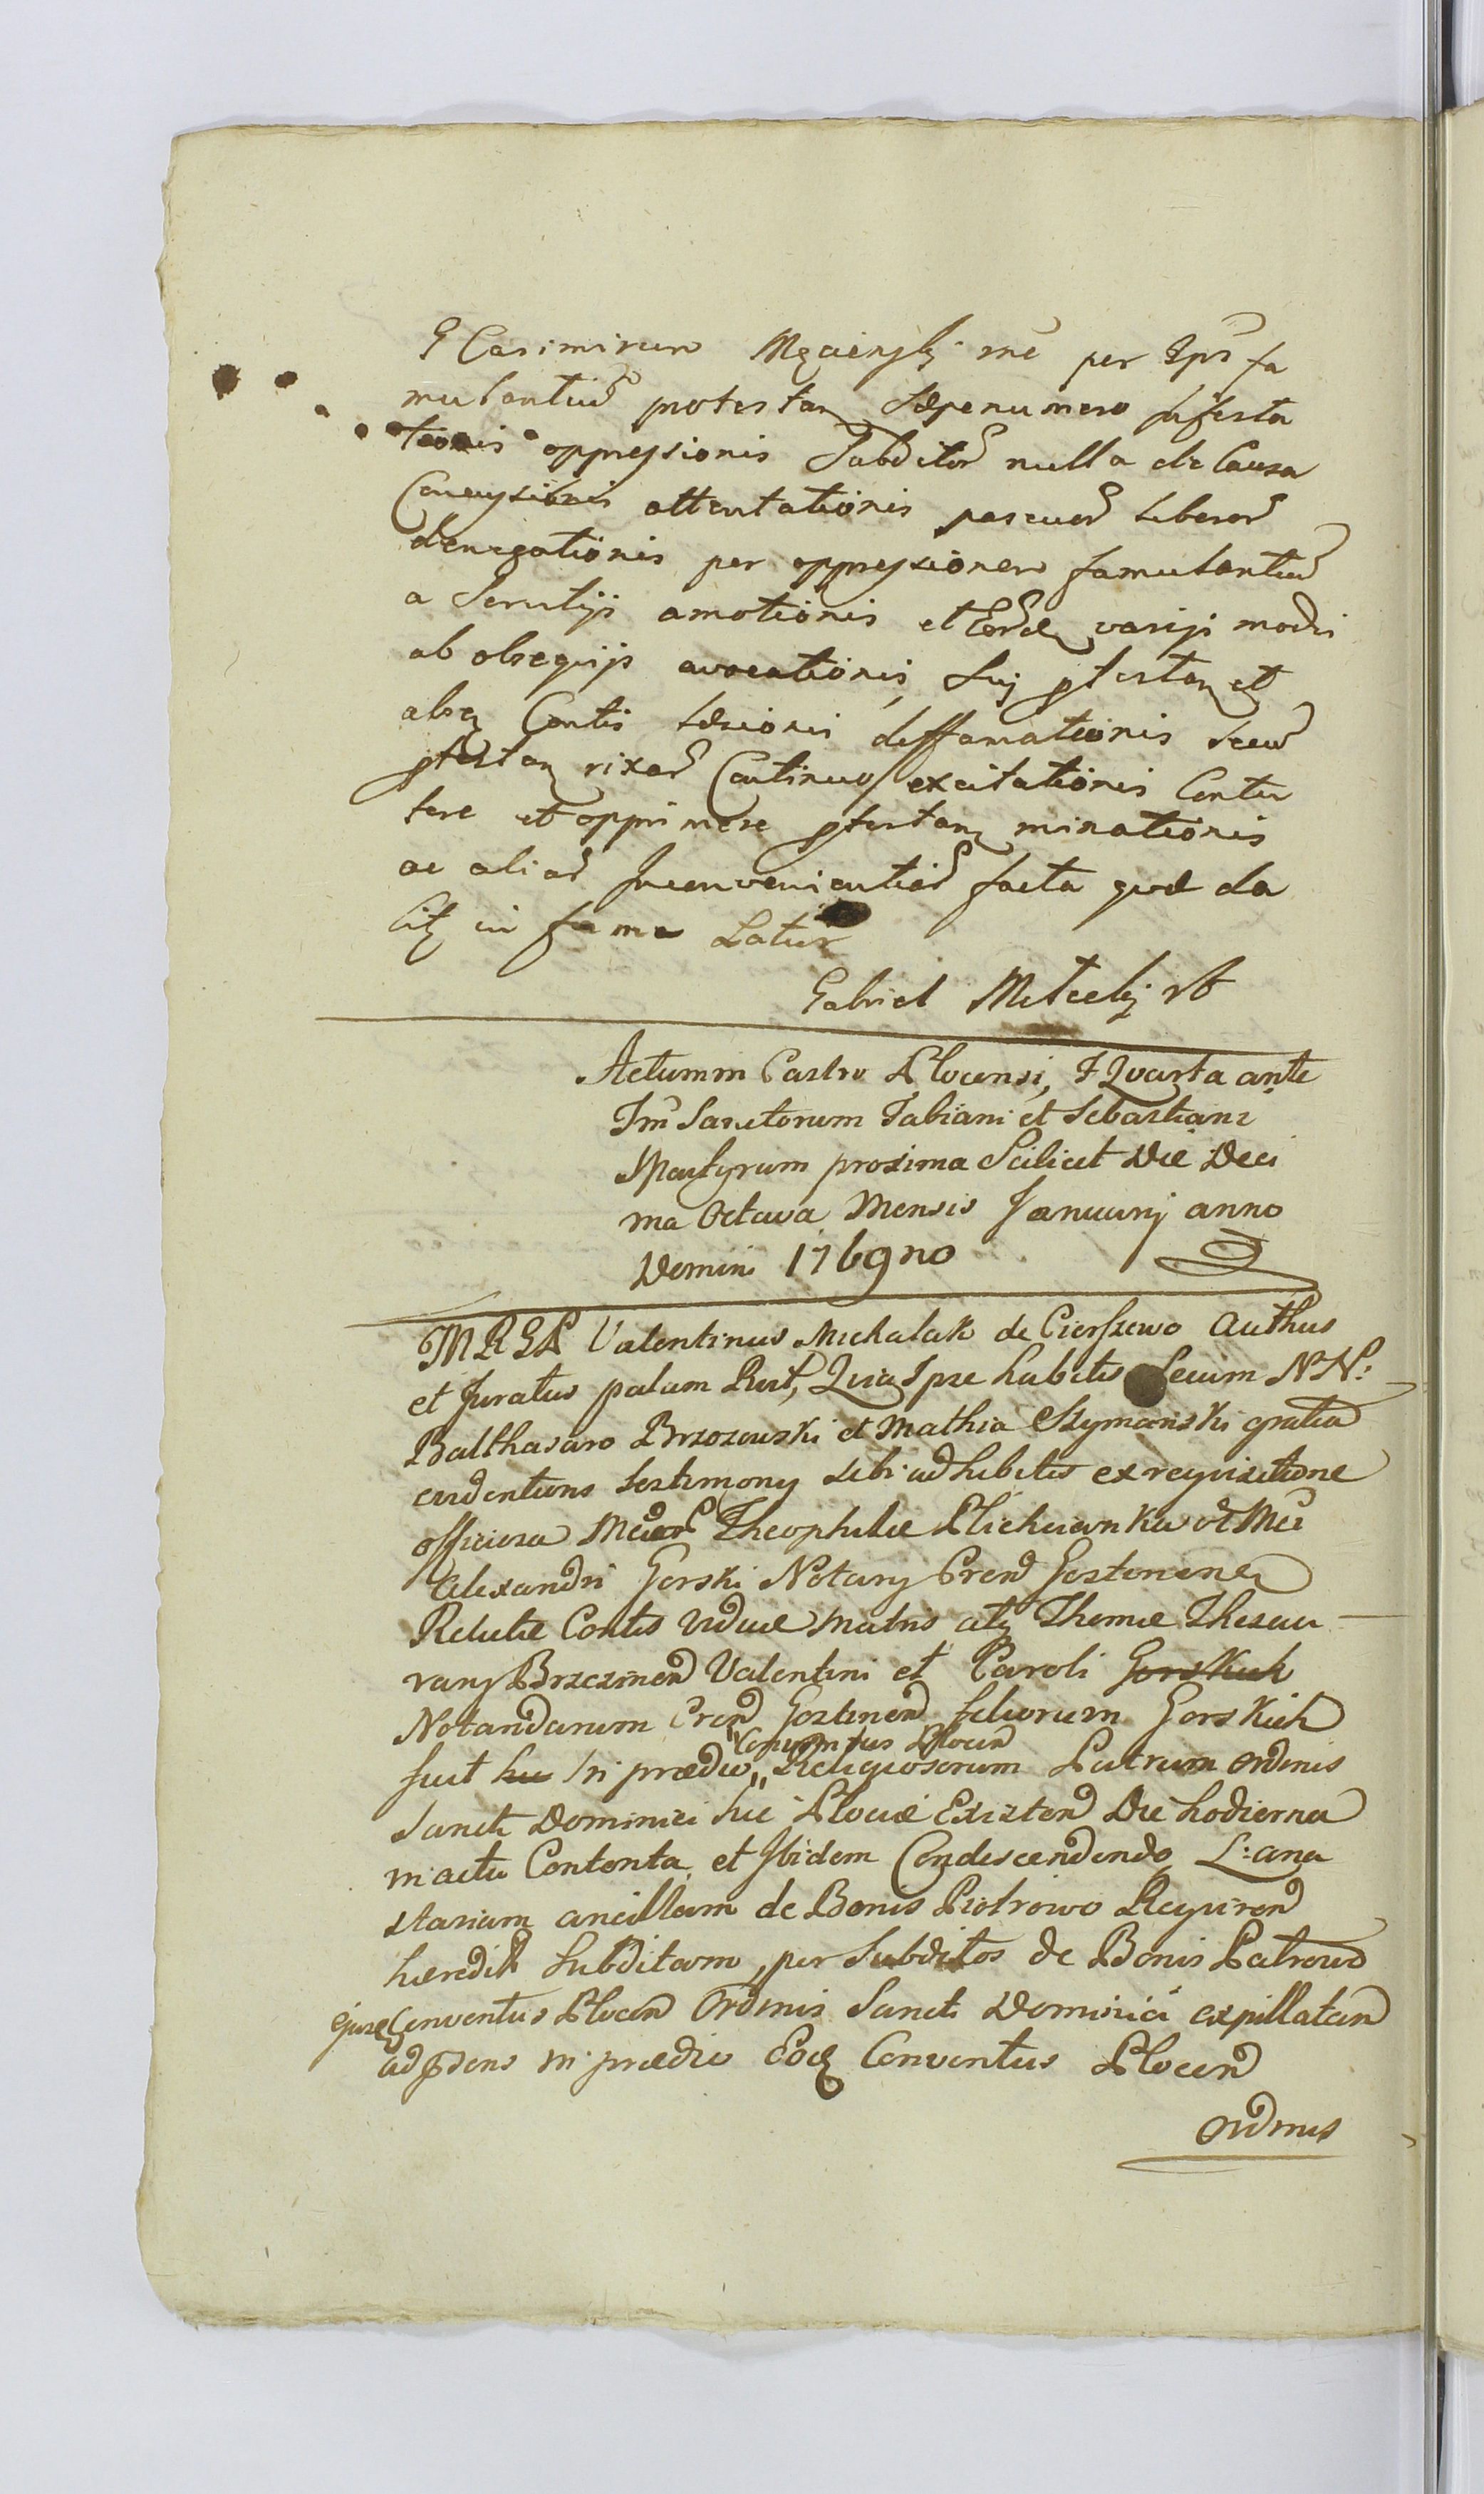 Casimirum me per Ips fa
mulantiu protestan sæpenumero infesta
tionis oppressionis Subditor nulla de Causa
Concussionis attentationis pascuor liberor
denegationis per oppressionem famulantiu
a Servitijs amotionis et varijs modis
ab obsequijs avocationis sui ptestan et
absq Contis læsionis diffamationis secu
ptestan rixar Continuo excitationis Conter
rere et opprimere ptestan minationis
ac aliar Inconvenientiar facta quæ da
Cit in forma Latius
Gabriel
Actum in Castro Plocensi, F Quarta ante
Fm Sanctorum Fabiani et Sebastiani
Martyrum proxima Scilicet Die Deci
ma Octava Mensis Januarij anno
Domini 1769no
MRGL Valentinus Michalak de Cierszewo Authus
et Juratus palam Quia Ipse habitis Secum NN:
Balthasaro Brzozowski et Mathia Szymanski gratia
evidentioris testimonij sibi adhibitis ex requisitione
officiosa Theophilæ et
Alexandri Gorski Notarij Gostinen
Relictæ Contis viduæ Matris atq Thomæ Thesau
rarij Brzezinen Valentini et Caroli Gorskich
Notaridarum Gostinen filiorum Gorskich
fuit hic In prædio " Conventus Plocen " Religiosorum Patrum Ordinis
Sancti Dominici hic Plociæ Existen Die hodierna
in actu Contenta et Ibidem Condescendendo L: ana
stasiam ancillam de Bonis Piotrowo Requiren
hæredit Subditam, per Subditos de Bonis
ejusq Conventus Plocen Ordinis Sancti Dominici expillatam
ad in prædio Conventus Plocen
Ordinis